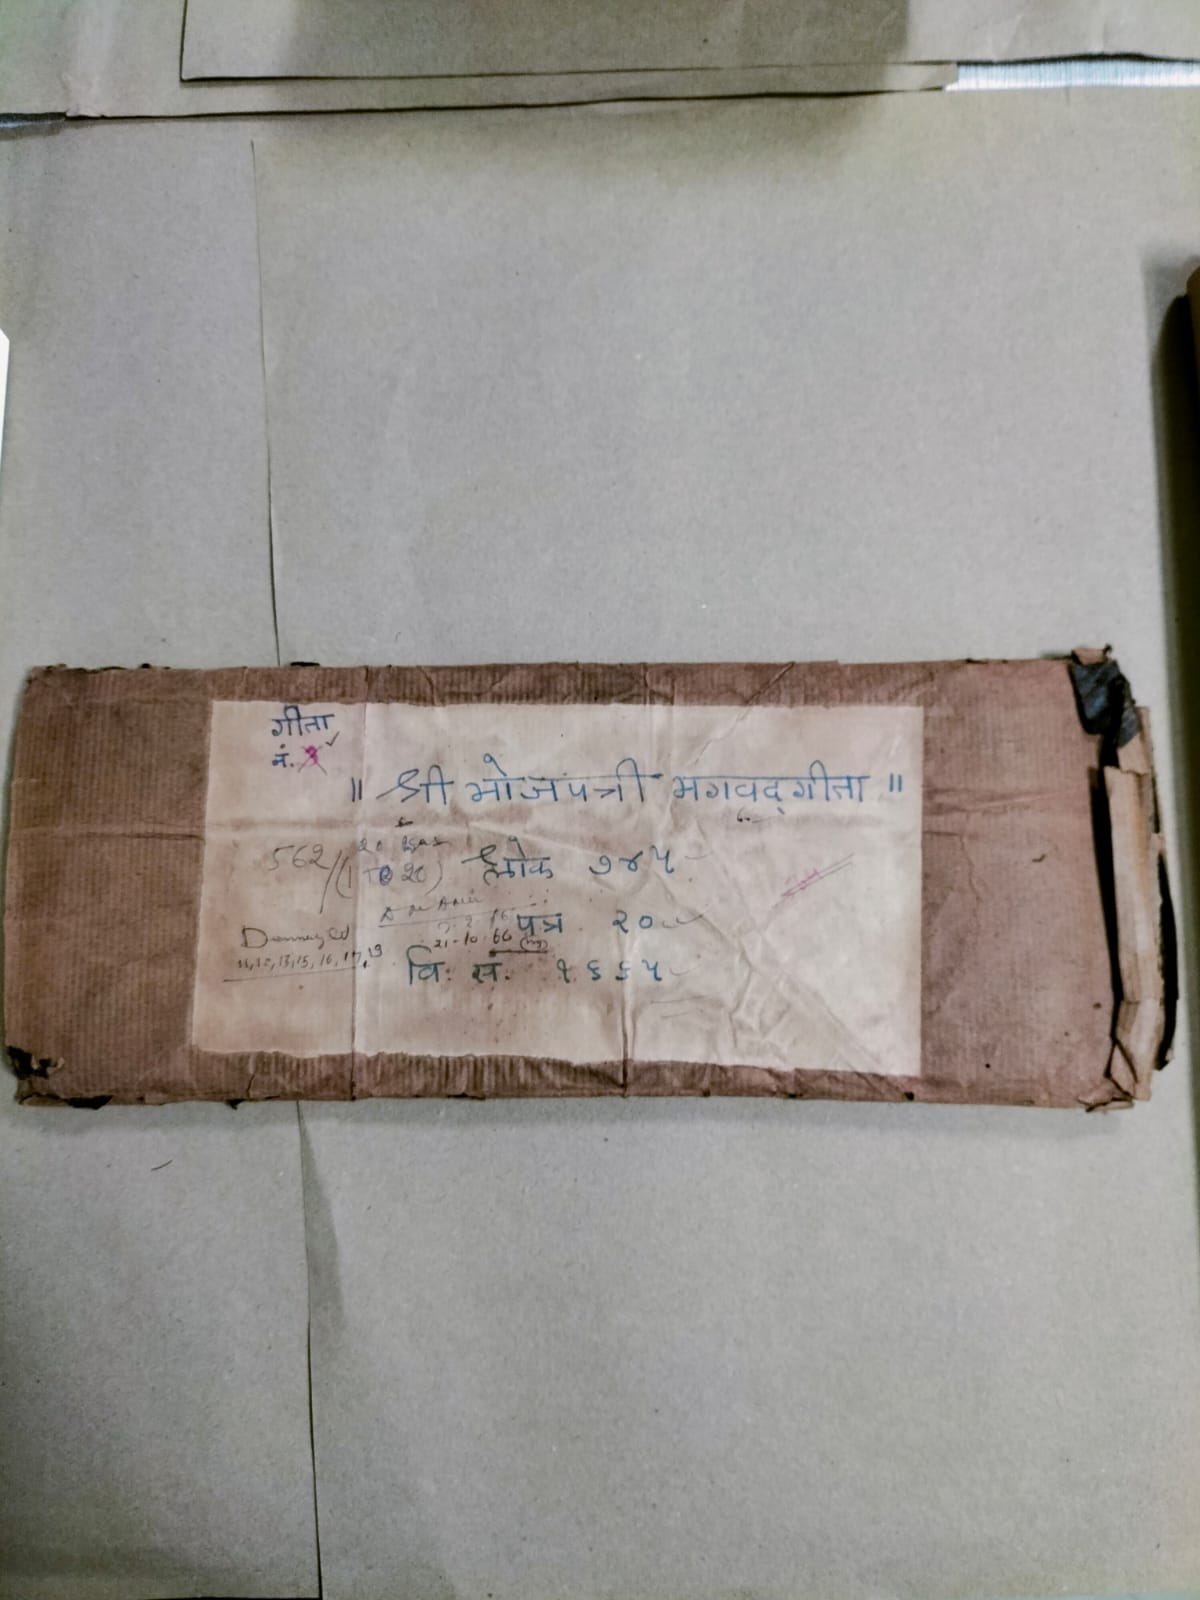 गीता
नं. ३
॥ श्री भोजपत्री भगवद्गीता ॥
562/(1 TO 20)
श्लोक ७४५
पत्र २०
21-10-66
Damaged
11,12,13,15,16,17,19
वि. सं. १६६५